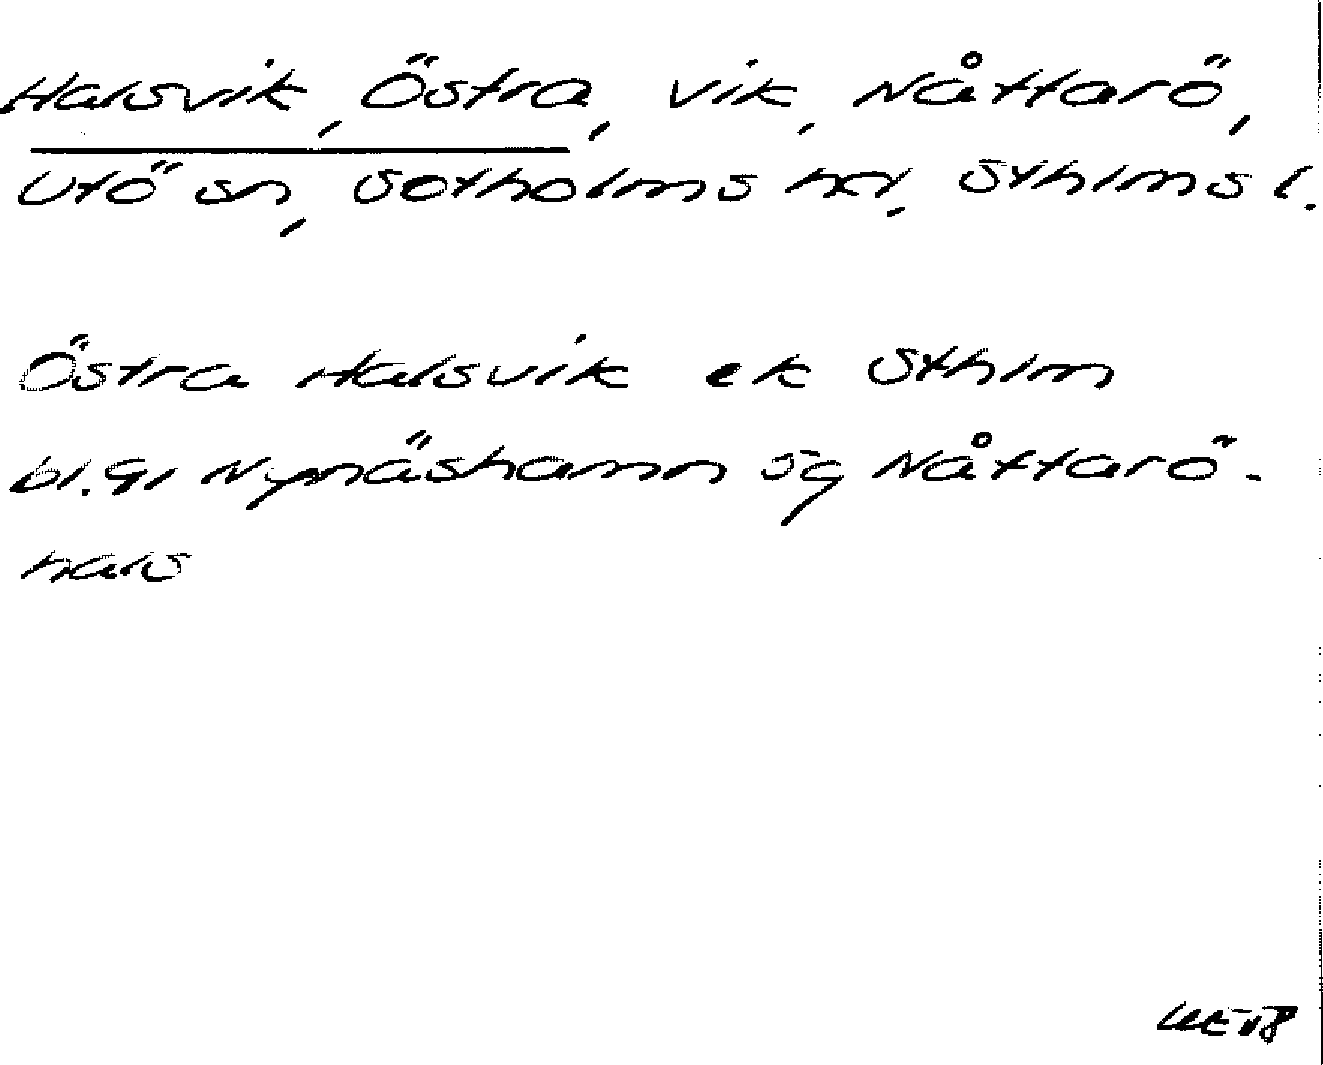 Halsvik, Östra, vik, Nåttarö,
Utö sn, Sotholms hd, Sthlms l.
Östra Halsvik ek Sthlm
bl. 91 Nynäshamn sg Nåttarö.
hals